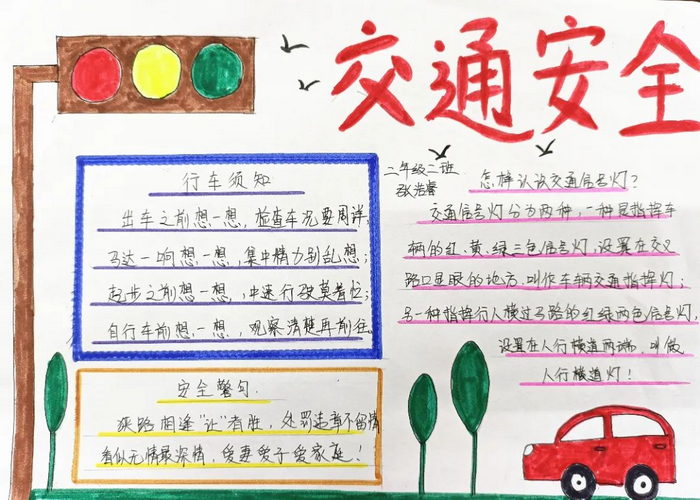 交通安全
二年级二班
行车须知
出车之前想一想，检查车况要周详，
马达一响想一想，集中精力别乱想；
起步之前想一想，中速行驶莫着忙；
自行车前想一想，观察清楚再前往
安全警句
狭路相逢“让”者胜，处罚违章不留情
看似无情最深情，爱妻爱子爱家庭！
怎样认识交通信号灯？
交通信号灯分为两种，一种是指挥车
辆的红、黄、绿三色信号灯，设置在交叉
路口显眼的地方，叫作车辆交通指挥灯；
另一种指挥行人横过马路的红绿两色信号灯，
设置在人行横道两端，叫做
人行横道灯！